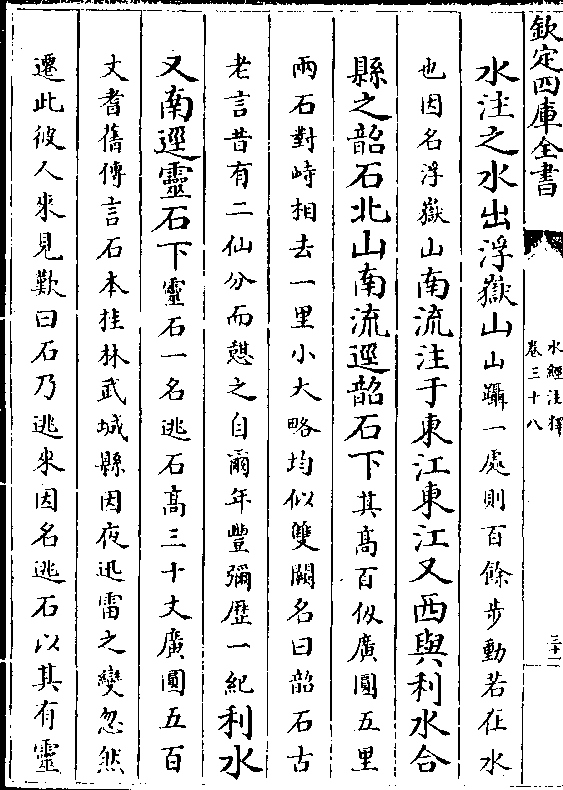 欽定四庫全書
水經注釋
卷三十八
三十一
水注之水出浮嶽山山躡一處則百餘步動若在水
也因名浮嶽山南流注于東江東江又西與利水合
縣之韶石北山南流逕韶石下其髙百仭廣圓五里
兩石對峙相去一里小大略均似雙闕名曰韶石古
老言昔有二仙分而憩之自爾年豐彌歴一紀利水
又南逕靈石下靈石一名逃石髙三十丈廣圓五百
丈耆舊傳言石本桂林武城縣因夜迅雷之變忽然
遷此彼人來見歎曰石乃逃來因名逃石以其有靈